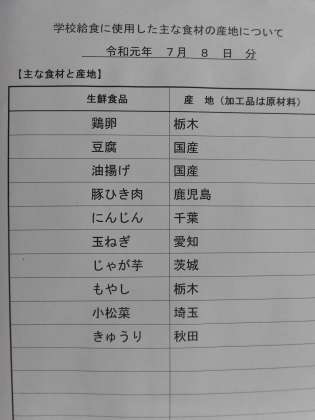 学校給食に使用した主な食材の産地について
令和元年 7月 8 日 分
【主な食材と産地】
生鮮食品 産 地（加工品は原材料）
鶏卵 栃木
豆腐 国産
油揚げ 国産
豚ひき肉 鹿児島
にんじん 千葉
玉ねぎ 愛知
じゃが芋 茨城
もやし 栃木
小松菜 埼玉
きゅうり 秋田